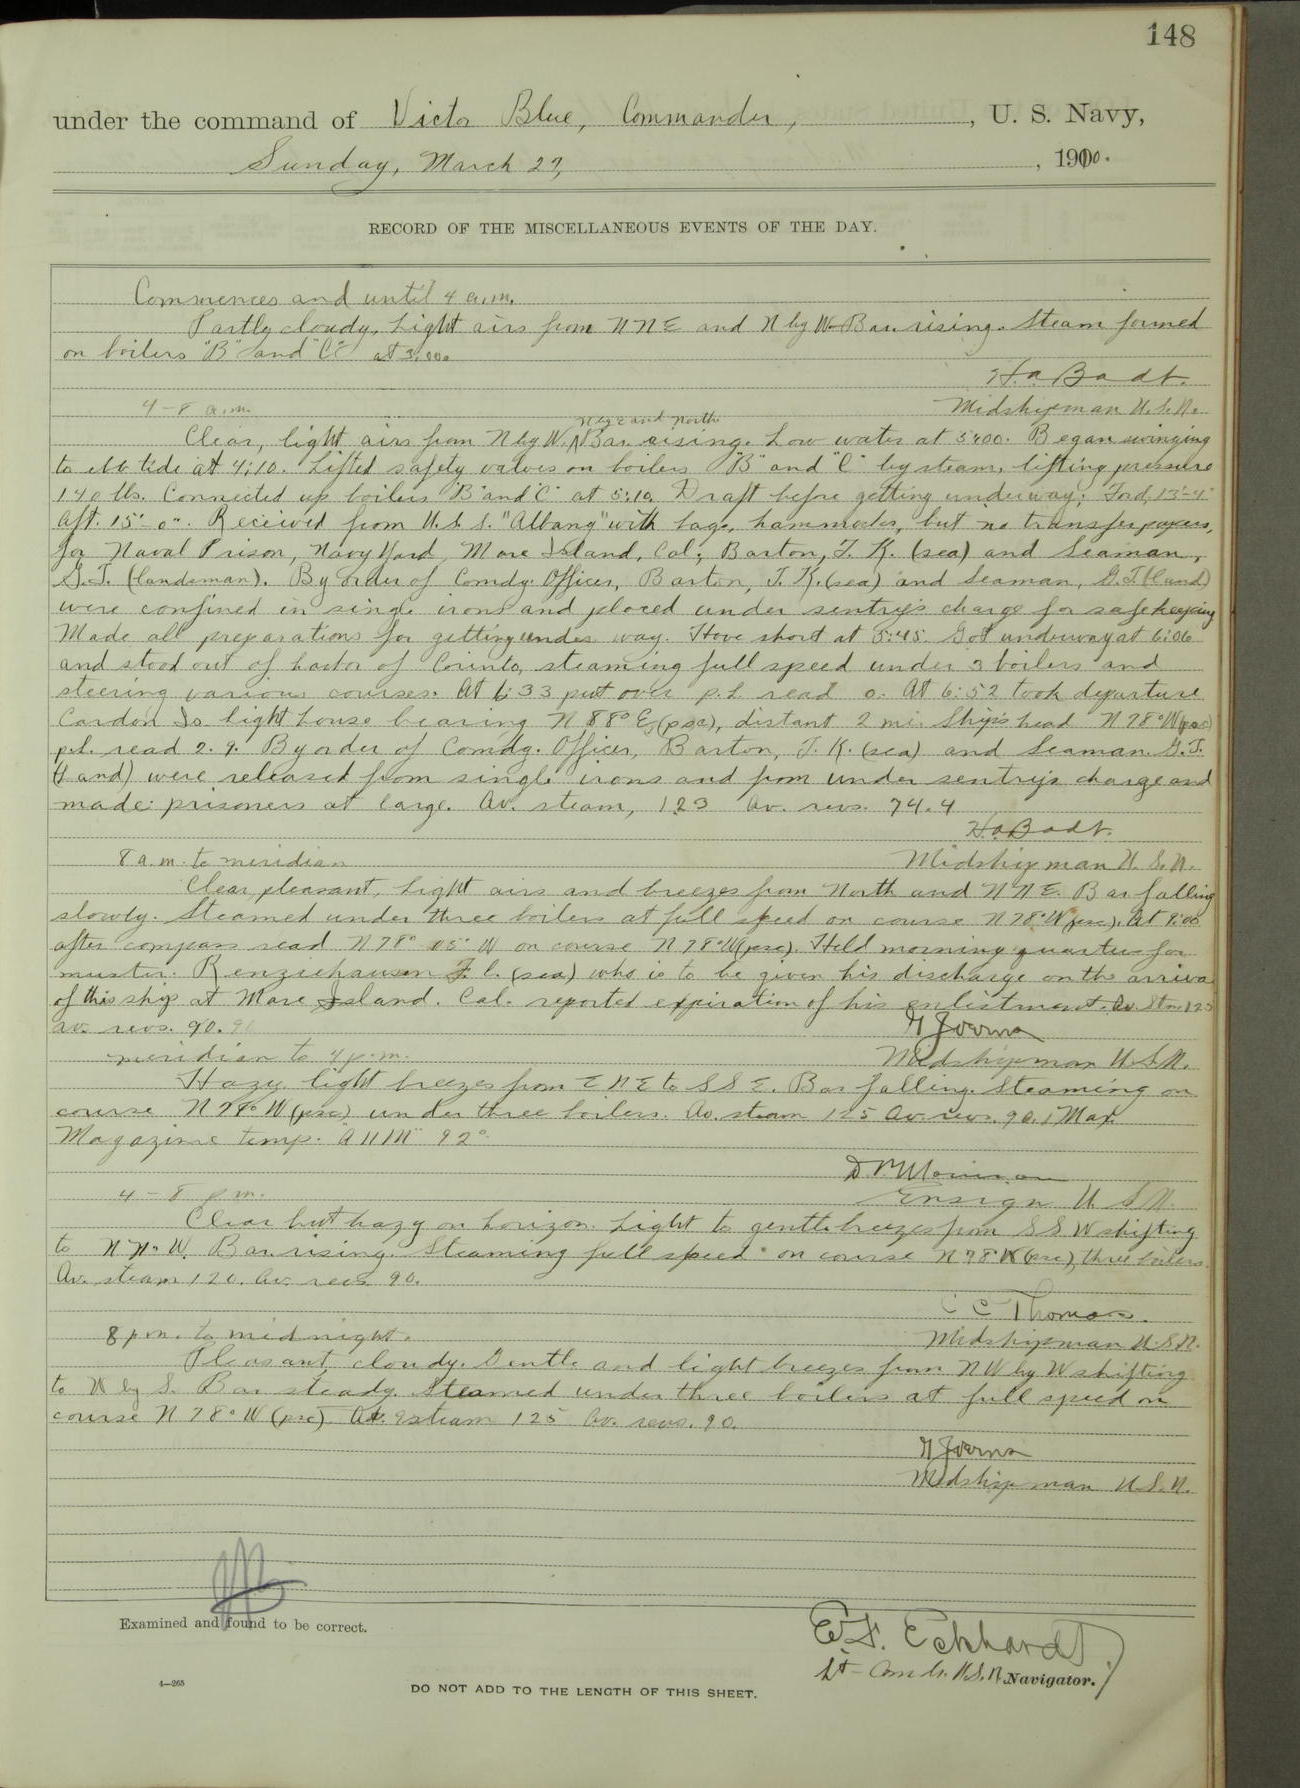 148
under the command of Victor Blue, Commander, , U. S. Navy,
Sunday, March 27, , 1910.
RECORD OF THE MISCELLANEOUS EVENTS OF THE DAY.
Commences and until 4 a.m.
Partly cloudy, Light airs from NNE and N by W. Bar. rising. Steam formed
on boilers "B" and "C" at 3.00.
H. A. Badt.
4-8 a.m. Midshipman U.S.N.
N by E and North
Clear, light airs from N by W. Bar. rising. Low water at 5:00. Began swinging
to ebb tide at 4:10. Lifted safety valves on boilers "B" and "C" by steam, lifting pressure
140 lbs. Connected up boilers "B" and "C" at 5:10. Draft before getting underway: Ford. 13'-9"
Aft. 15'-0". Received from U.S.S. "Albany" with bags, hammocks, but no transfer papers,
for Naval Prison, Navy Yard, Mare Island, Cal; Barton, J. K. (sea) and Seaman,
G.T. (landsman). By order of Comdg. Officer, Barton, J. K. (sea) and Seaman, G.T. (land)
were confined in single irons and placed under sentry's charge for safe keeping
Made all preparations for getting under way. Hove short at 5:45. Got underway at 6:06
and stood out of harbor of Corinto, steaming full speed under 3 boilers and
steering various courses. At 6:33 put over p.l. read 0. At 6:52 took departure
Cardon Is light house bearing N 88° E (psc), distant 2 mi. Ship's head N 78° W (psc)
p.l. read 2.9. By order of Comdg. Officer, Barton, J. K. (sea) and Seaman G.T.
(land) were released from single irons and from under sentry's charge and
made prisoners at large. Av. steam, 123 Av. revs. 74.4
H. A. Badt.
8 a.m. to meridian Midshipman U.S.N.
Clear, pleasant, Light airs and breezes from North and NNE. Bar falling
slowly. Steamed under three boilers at full speed on course N 78° W (psc). At 8:00
after compass read N 78° 05' W on course N 78° W (psc). Held morning quarters for
muster. Renziehausen F. C. (sea) who is to be given his discharge on the arrival
of this ship at Mare Island. Cal. reported expiration of his enlistment. Av. Stm 125
av. revs. 90.
Midshipman U.S.N.
meridian to 4 p.m.
Hazy. light breezes from ENE to SSE. Bar falling. Steaming on
course N 78° W (psc) under three boilers. Av. steam 125 Av. revs. 90.1 Max.
Magazine temp. 92°.
4-8 p.m. Ensign U.S.N.
Clear but hazy on horizon. Light to gentle breezes from SSW shifting
to NNW. Bar. rising. Steaming full speed on course N 78° W (psc), three boilers.
Av. steam 120. Av. revs 90.
C C Thomas.
8 p.m. to midnight. Midshipman U.S.N.
Pleasant, cloudy. Gentle and light breezes from NW by W shifting
to W by S. Bar steady. Steamed under three boilers at full speed on
course N 78° W (psc) Av. steam 125 Av. revs. 90.
Midshipman U.S.N.
Examined and found to be correct.
E. F. Eckhardt
Lt-Comdr. U.S.N. Navigator.
4—265
DO NOT ADD TO THE LENGTH OF THIS SHEET.